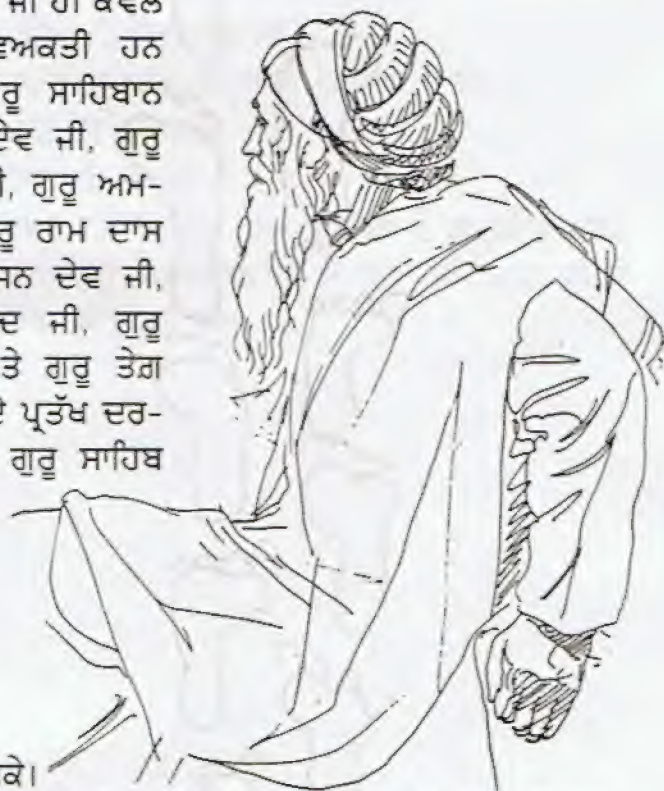 ਜੀ ਹੀ ਕੇਵਲ
ਵਿਅਕਤੀ ਹਨ
ਸਾਹਿਬਾਨ
ਦੇਵ ਜੀ, ਗੁਰੂ
ਗੁਰੂ ਅਮ-
ਰਾਮ ਦਾਸ
ਦੇਵ ਜੀ,
ਜੀ, ਗੁਰੂ
ਤੇ ਗੁਰੂ ਤੇਗ਼
ਪ੍ਰਤੱਖ ਦਰ-
ਗੁਰੂ ਸਾਹਿਬ